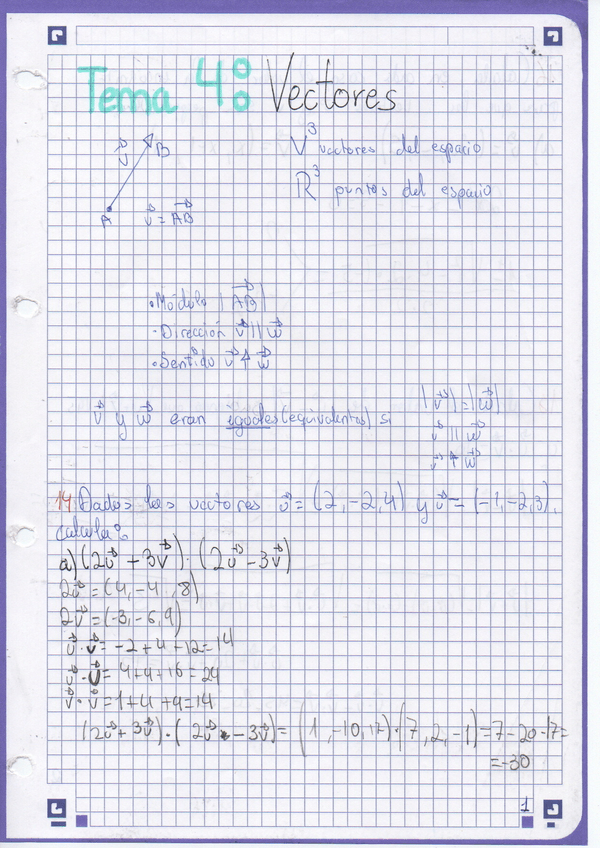 Tema 4: Vectores
B
v⃗
V³ vectores del espacio
R³ puntos del espacio
A
v⃗ = AB⃗
• Módulo |AB⃗|
• Dirección v⃗ || w⃗
• Sentido v⃗ ↑ w⃗
v⃗ y w⃗ eran iguales (equivalentes) si
|v⃗| = |w⃗|
v⃗ || w⃗
v⃗ ↑ w⃗
14. Dados los vectores u⃗ = (2, -2, 4) y v⃗ = (-1, -2, 3),
calcula:
a) (2u⃗ + 3v⃗) · (2u⃗ - 3v⃗)
2u⃗ = (4, -4, 8)
2v⃗ = (-3, -6, 9)
u⃗ · v⃗ = -2 + 4 + 12 = 14
u⃗ · u⃗ = 4 + 4 + 16 = 24
v⃗ · v⃗ = 1 + 4 + 9 = 14
(2u⃗ + 3v⃗) · (2u⃗ - 3v⃗) = (1, -10, 17) · (7, 2, -1) = 7 - 20 - 17 =
= -30
1